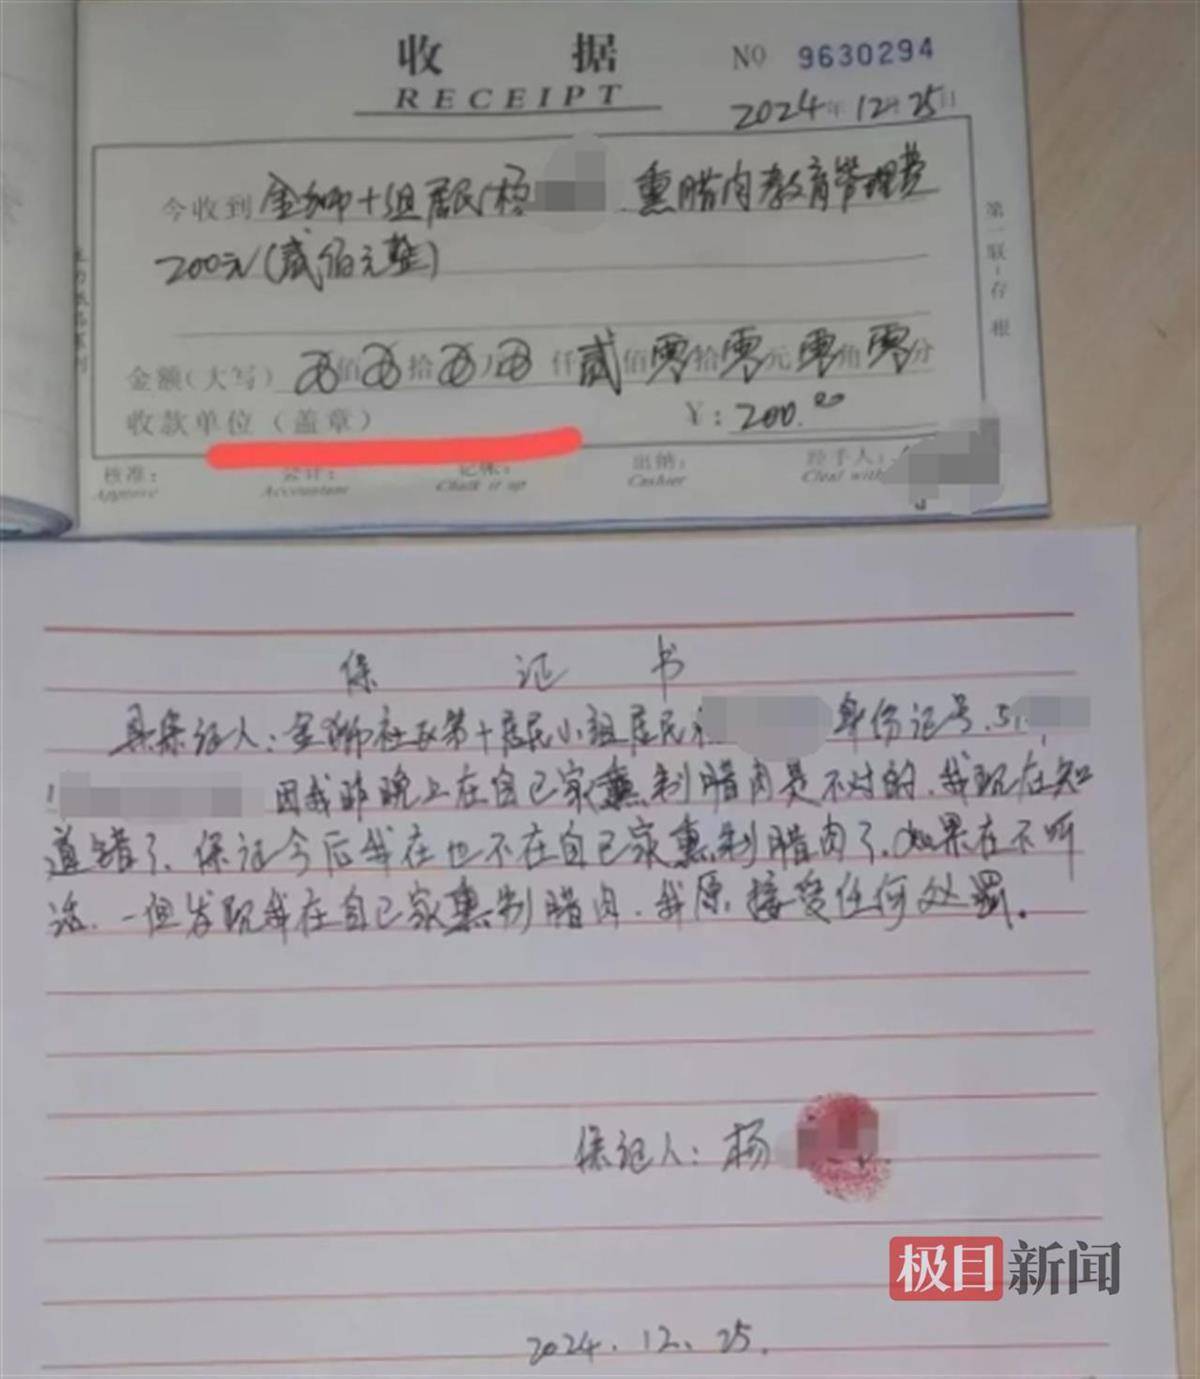 收 据
RECEIPT
NO 9630294
2024年12月25日
今收到 金狮十组居民杨 熏腊肉教育管理费
200元(贰佰元整)
金额(大写) 佰 拾 万 仟 贰 佰 零 拾 零 元 零 角 零 分
收款单位(盖章) ¥: 200.00
核准: 会计: 记帐: 出纳: 经手人:
Approve Accountant Chalk it up Cashier Cleal with
第一联:存根
保 证 书
具保证人:金狮社区第十居民小组居民 身份证号.51
因我昨晚上在自己家熏制腊肉是不对的.我现在知
道错了、保证今后我在也不在自己家熏制腊肉了.如果在不听
话.一但发现我在自己家熏制腊肉.我原接受任何处罚.
保证人:杨
极目新闻
2024.12.25.